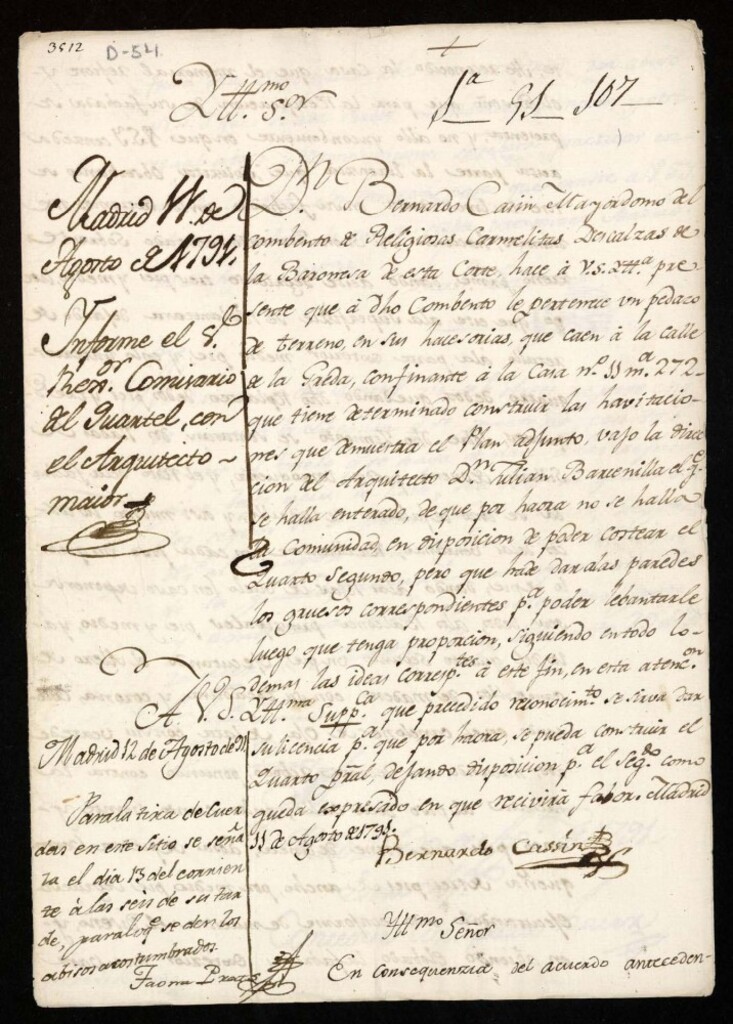 3512
D-54
Ytt.mo S.or
1a 51 107
Madrid 11 de
Agosto de 1791.
Informe el S.r
Rexr. Comisario
del Quartel, con
el Arquitecto
maior
D.n Bernardo Casin Mayordomo del
combento de Religiosas Carmelitas Descalzas de
la Baronesa de esta Corte, hace à V.S. Ytt.a pre
sente que à dho Combento le pertenece un pedazo
de terreno, en sus hacesorias, que caen à la calle
de la Greda, confinante à la Casa n.o 11 m.a 272-
que tiene determinado construir las havitacio-
nes que demuestra el Plan adjunto, vajo la direc
cion del Arquitecto D.n Julian Barcenilla el q.e
se halla enterado, de que por haora no se halla
la Comunidad en disposicion de poder costear el
Quarto segundo, pero que hade dar alas paredes
los gruesos correspondientes p.a poder lebantarle
luego que tenga proporcion, siguiendo en todo lo-
demas las ideas corresp.tes à este fin, en esta atenc.on
A. V. S. Ytt.ma Supp.ca que precedido reconocim.to se sirva dar
su licencia p.a que por haora se pueda construir el
Quarto pral, dejando disposicion p.a el seg.do como
queda expresado en que recivirá fabor. Madrid
11 de Agosto de 1791.
Bernardo Cassin
Madrid 12 de Agosto de 91
Para la tira de Cuer
das en este sitio se seña
la el dia 13 del corrien
te à las seis de su tar
de, para lo q.e se den los
abisos acostumbrados.
Yttmo Señor
En consequenzia del acuerdo anteceden-